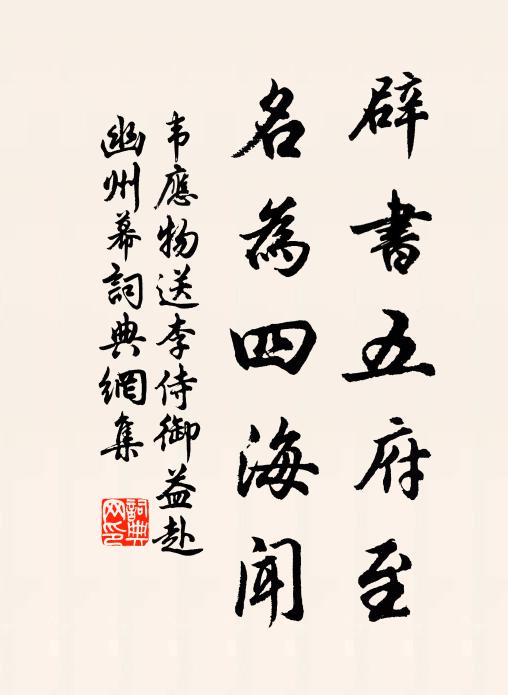 辟書五府至
名為四海聞
韦應物送李侍御益赴
幽州幕詞典網集
詞典网印